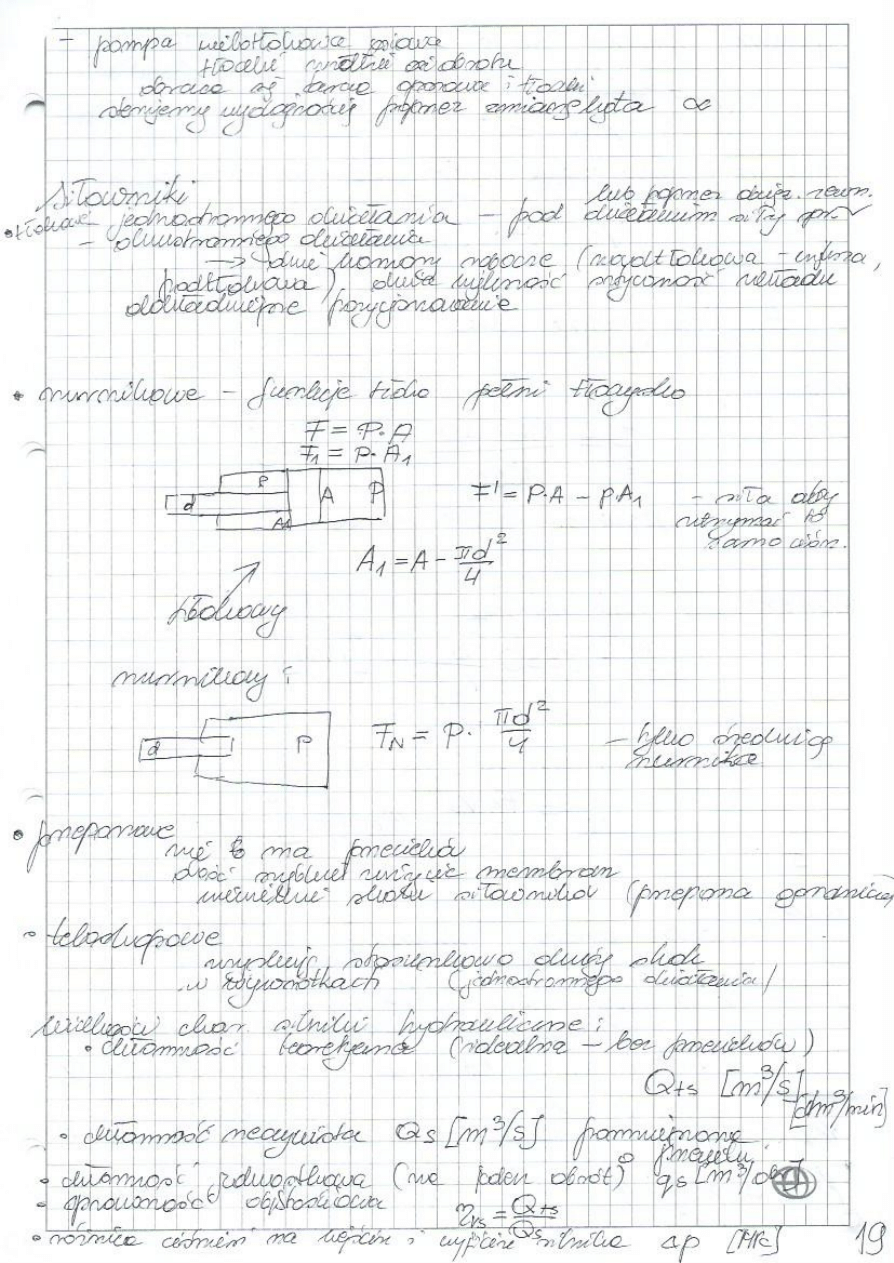 - pompa wielotłokowa osiowa
tłoczki wzdłuż osi obrotu
obraca się tarcza oporowa i tłoczki
sterujemy wydajnością poprzez zmianę kąta α
Siłowniki
lub poprzez obciąż. zewn.
• tłokowe jednostronnego działania – pod działaniem siły spr.
– dwustronnego działania
→ dwie komory robocze (nadtłokowa – większa,
podtłokowa) duża sztywność układu
dokładniejsze pozycjonowanie
• nurnikowe – funkcję tłoka pełni tłoczysko
F = P·A
F1 = P·A1
p
d A P
A1
F' = P·A – p·A1 – siła aby
utrzymać to
samo ciśn.
A1 = A – πd²/4
tłokowy
nurnikowy:
d P
FN = P· πd²/4 – tylko średnica
nurnika
• przeponowe
nie ma przecieków
dość szybkie zużycie membran
niewielki skok siłownika (przepona ogranicza)
• teleskopowe
uzyskuje stosunkowo duży skok
w wywrotkach (jednostronnego działania)
Wielkości char. silniki hydrauliczne:
• chłonność teoretyczna (idealna – bez przecieków)
Qts [m³/s]
[dm³/min]
• chłonność rzeczywista Qs [m³/s] pomniejszona
o przecieki
• chłonność jednostkowa (na jeden obrót) qs [m³/obr]
• sprawność objętościowa
ηvs = Qts/Qs
• różnica ciśnień na wejściu i wyjściu silnika Δp [MPa]
19